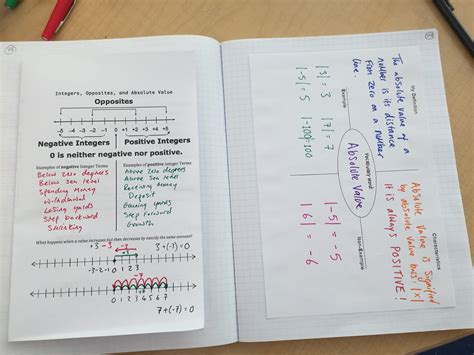 Integers, Opposites, and Absolute Value
Opposites
-5 -4 -3 -2 -1 0 +1 +2 +3 +4 +5
Negative Integers
Positive Integers
0 is neither negative nor positive.
Examples of negative Integer Terms
Below Zero degrees
Below Sea level
Spending Money
Withdrawal
Losing yards
Step backward
Shrinking
Examples of positive Integer Terms
Above Zero degrees
Above Sea level
Receiving Money
Deposit
Gaining yards
Step forward
Growth
What happens when a value increases but then decreases by exactly the same amount?
+3 -3
3+(-3)=0
-3-2-1 0 1 2 3
-7
0 1 2 3 4 5 6 7
7+(-7)=0
My Definition
The absolute value of a
number is its distance
from zero on a number
line.
Characteristics
Absolute Value is Signified
by absolute value bars: |x|
It is always POSITIVE!
Vocabulary Word
Absolute Value
Example
|3|=3 |7|=7
|-5|=5 |-100|=100
Non-Example
|-5| = -5
|6| = -6